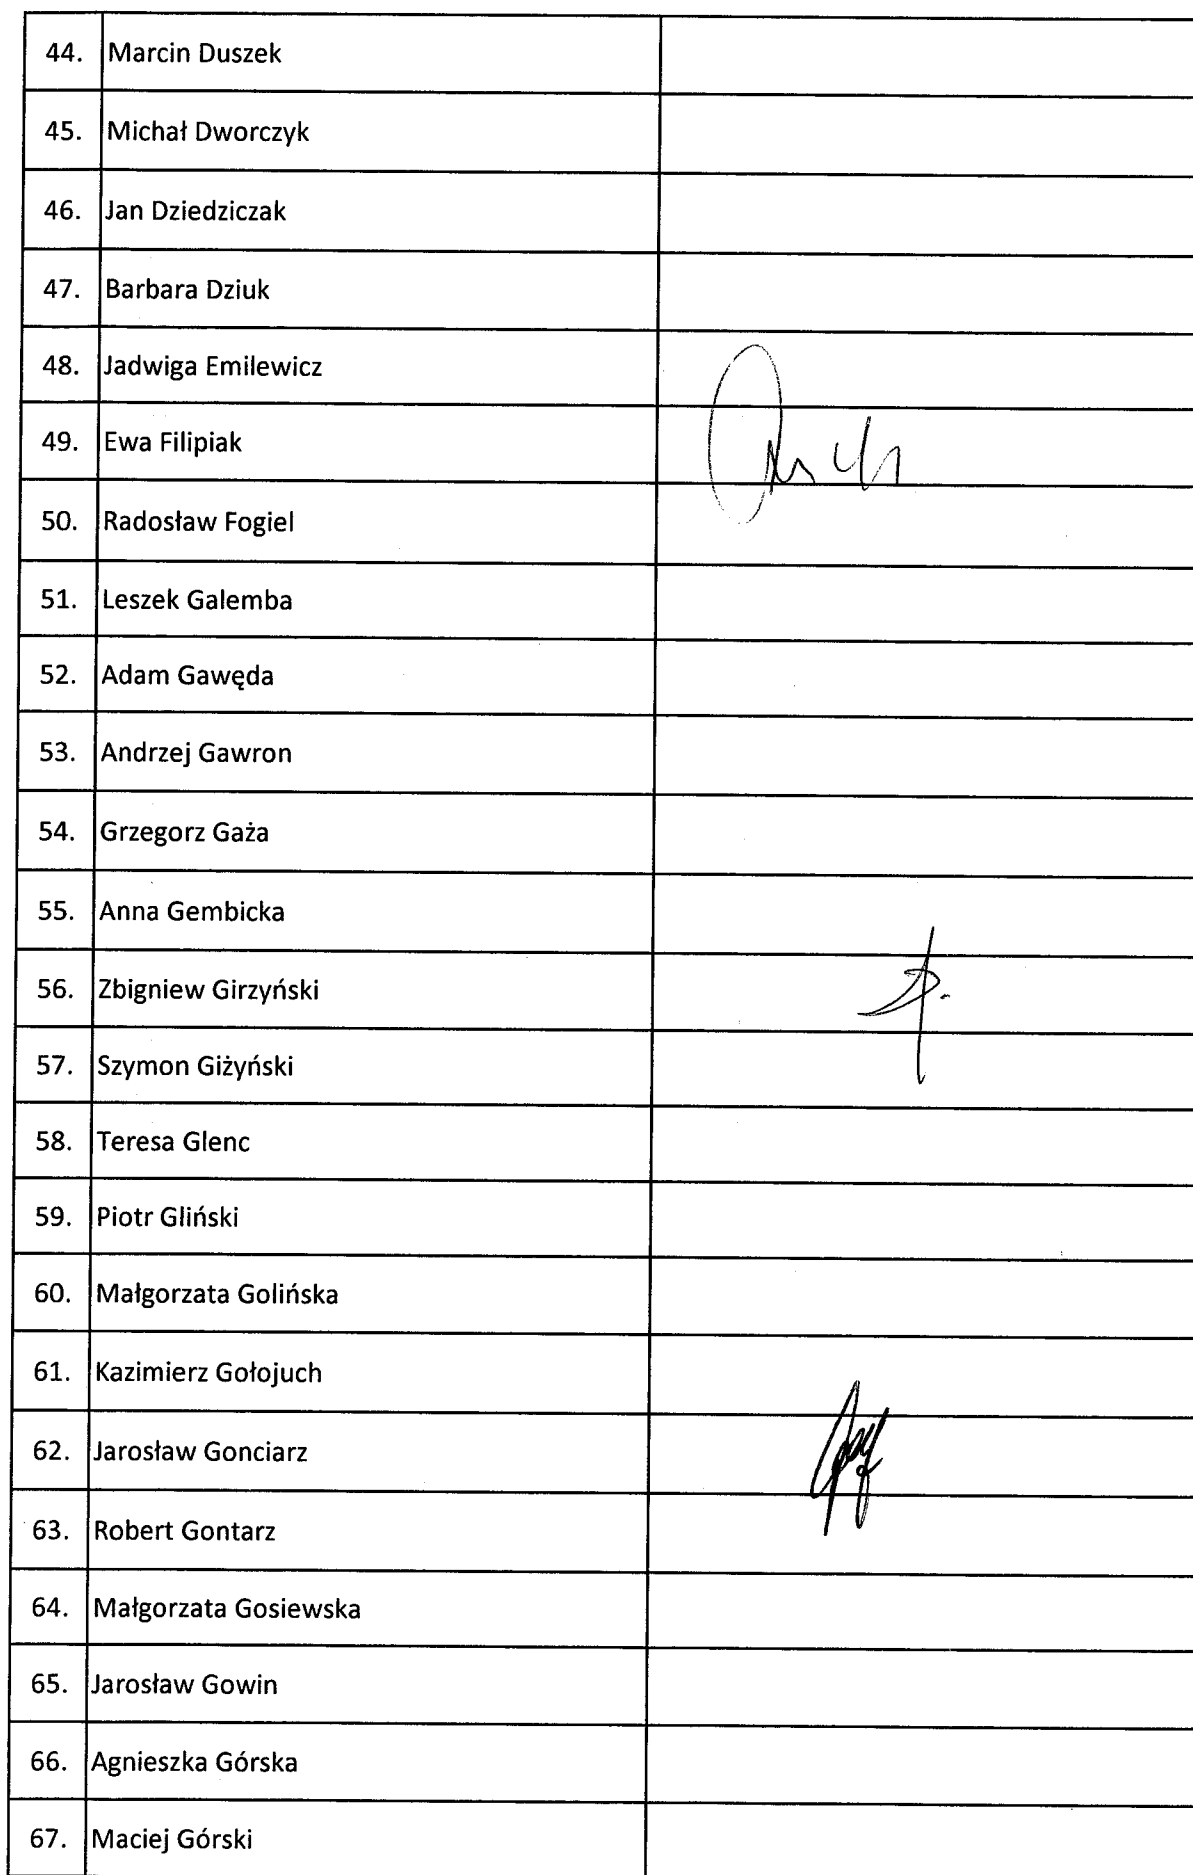 44. Marcin Duszek
45. Michał Dworczyk
46. Jan Dziedziczak
47. Barbara Dziuk
48. Jadwiga Emilewicz
49. Ewa Filipiak
50. Radosław Fogiel
51. Leszek Galemba
52. Adam Gawęda
53. Andrzej Gawron
54. Grzegorz Gaża
55. Anna Gembicka
56. Zbigniew Girzyński
57. Szymon Giżyński
58. Teresa Glenc
59. Piotr Gliński
60. Małgorzata Golińska
61. Kazimierz Gołojuch
62. Jarosław Gonciarz
63. Robert Gontarz
64. Małgorzata Gosiewska
65. Jarosław Gowin
66. Agnieszka Górska
67. Maciej Górski